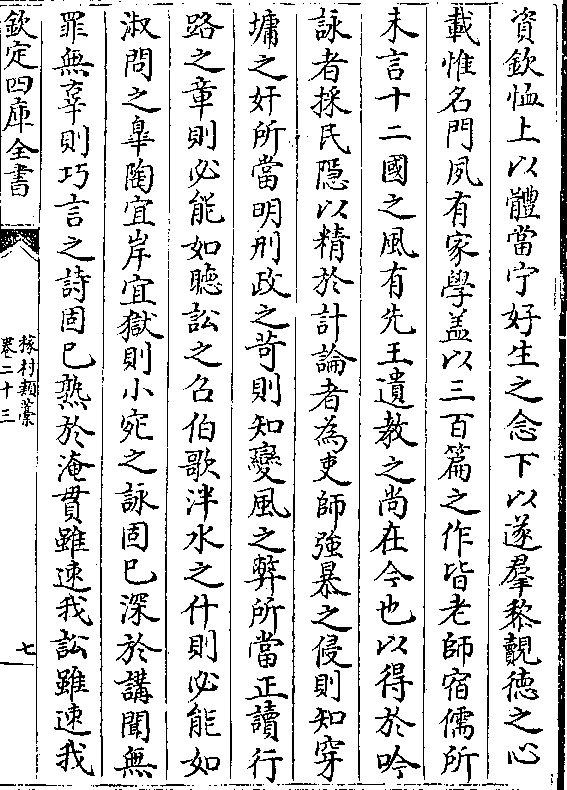 資欽恤上以體當宁好生之念下以遂羣黎覿徳之心
載惟名門夙有家學盖以三百篇之作皆老師宿儒所
未言十二國之風有先王遺教之尚在今也以得於吟
詠者採民隱以精於計論者為吏師強暴之侵則知穿
墉之奸所當明刑政之苛則知變風之弊所當正讀行
路之章則必能如聽訟之召伯歌泮水之什則必能如
淑問之臯陶宜岸宜獄則小宛之詠固已深於講聞無
罪無辜則巧言之詩固已熟於淹貫雖速我訟雖速我
欽定四庫全書
稼村類藁
卷二十三
七